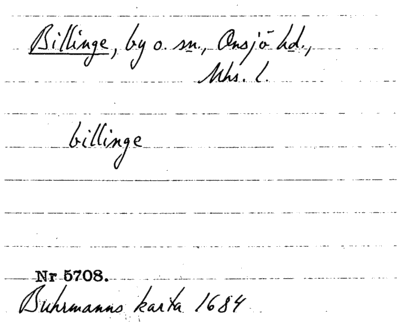 Billinge, by o. sn., Onsjö hd.,
Mhs. l.
billinge
Nr 5708.
Buhrmanns karta 1684